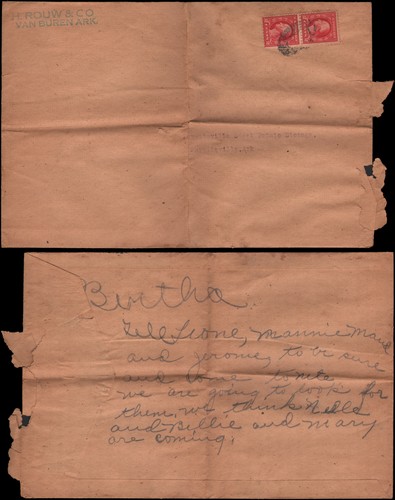 H. ROUW & CO.
VAN BUREN ARK.
Bertha.
Tell Leone, Mannie Maud
and Jerome, to be sure
and come to nite
we are going to look for
them, we think Nelle
and Billie and Mary
are coming.